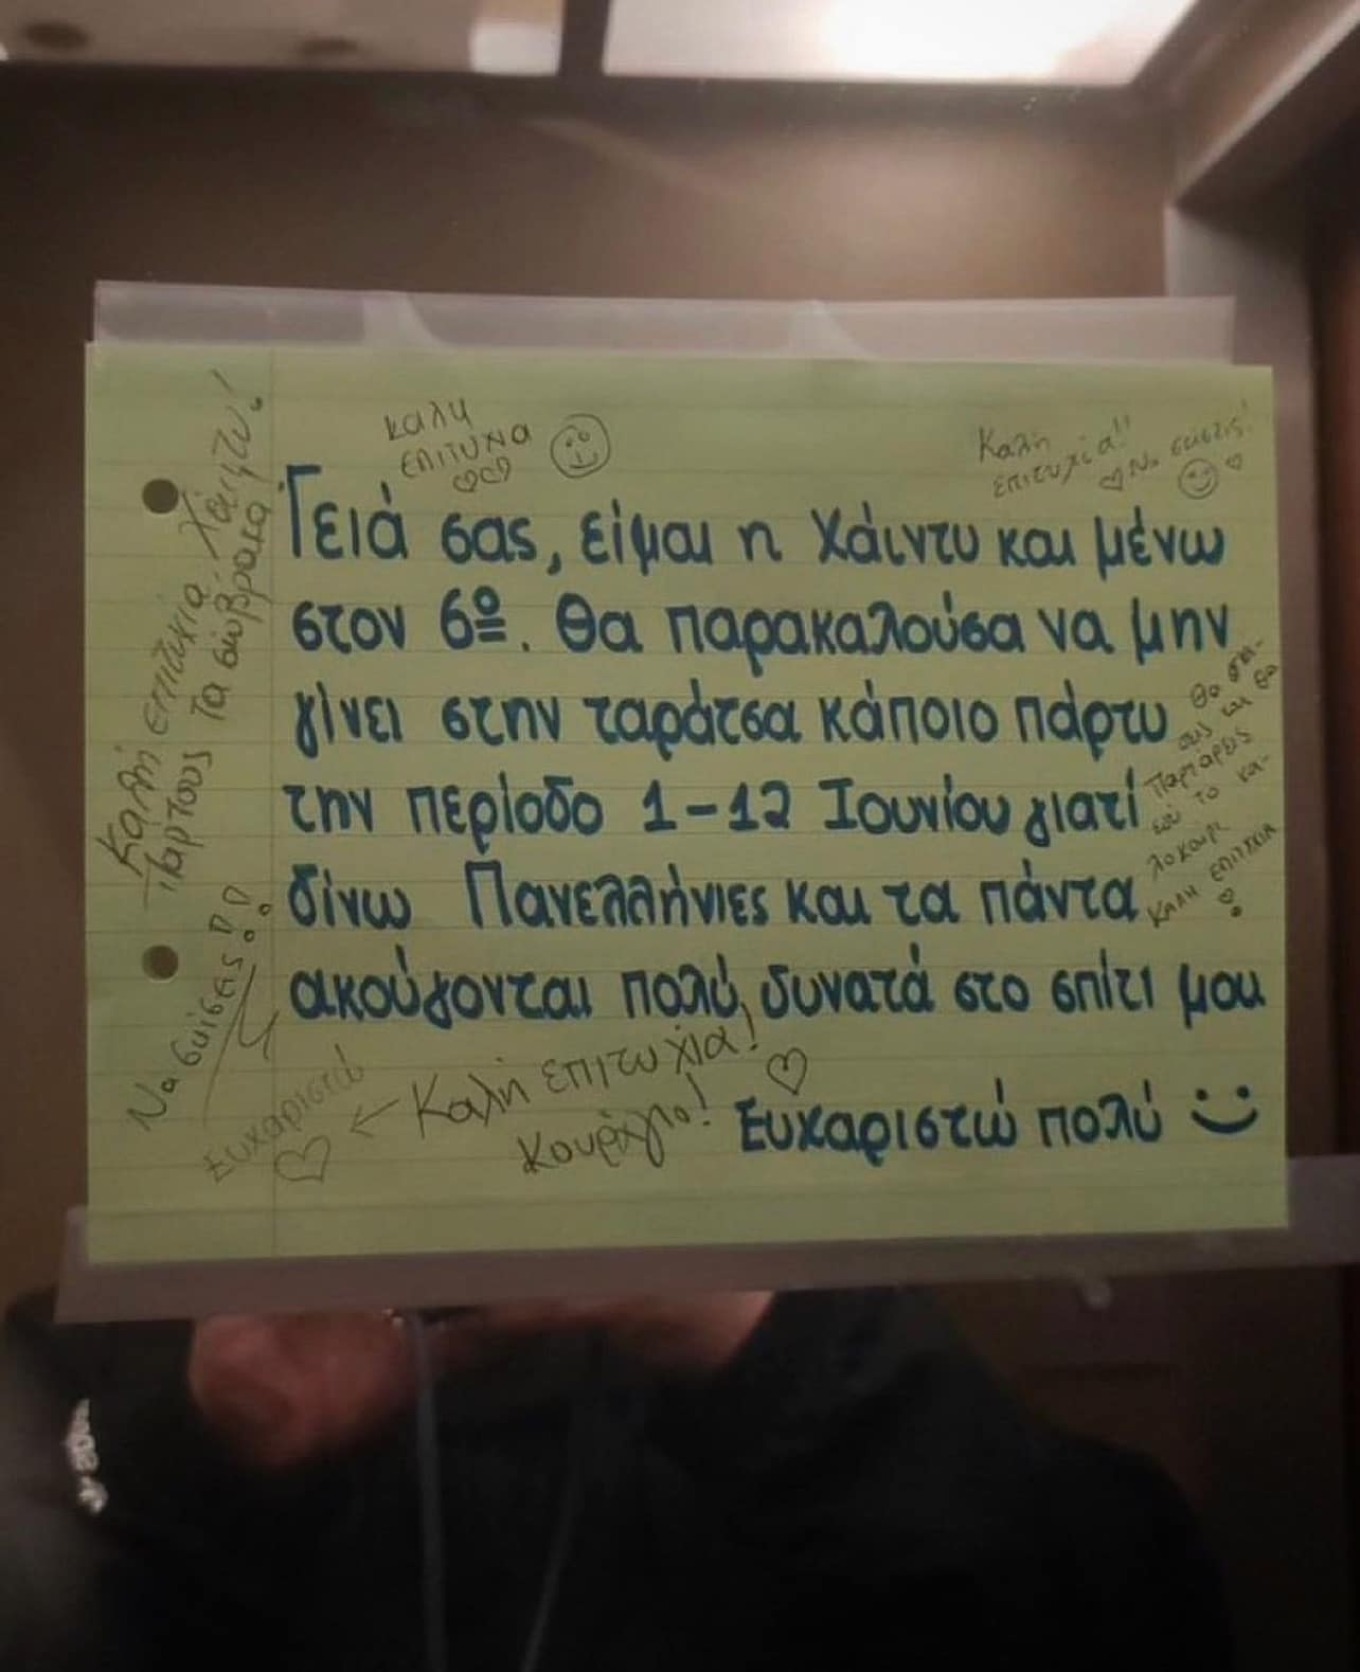 Καλή επιτυχία Χάιντυ!
Παρτους τα σώβρακα
καλη
επιτυχια
Καλή
επιτυχία!!
Να σκίσεις!
Γειά σας, είμαι η Χάιντυ και μένω
στον 6º. Θα παρακαλούσα να μην
γίνει στην ταράτσα κάποιο πάρτυ
την περίοδο 1-12 Ιουνίου γιατί
δίνω Πανελλήνιες και τα πάντα
ακούγονται πολύ δυνατά στο σπίτι μου
Ευχαριστώ πολύ
Θα
και θα
Παρταρεις
το κα-
λοκαιρι
ΚΑΛΗ ΕΠΙΤΥΧΙΑ
Να σκίσεις!!
Ευχαριστώ
← Καλή επιτυχία!
Κουράγιο!